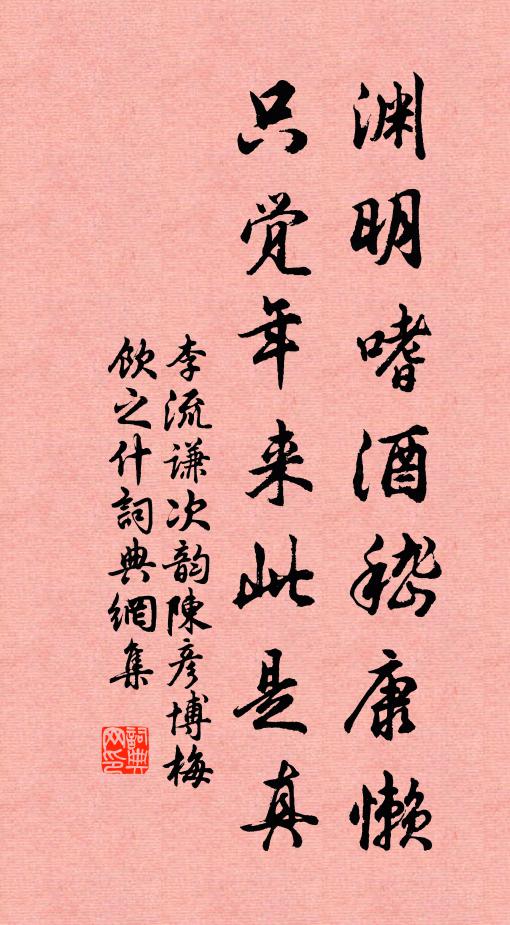 渊明嗜酒嵇康懒
只觉年来此是真
李流谦次韵陳彦博梅
饮之什詞典網集
詞典網印